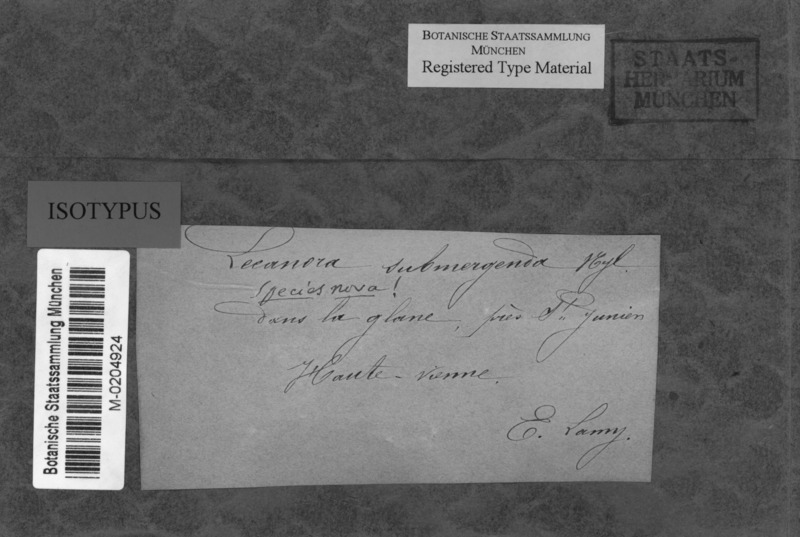 BOTANISCHE STAATSSAMMLUNG
MÜNCHEN
Registered Type Material
STAATS-
HERBARIUM
MÜNCHEN
ISOTYPUS
Botanische Staatssammlung München
M-0204924
Lecanora submergenda Nyl.
species nova!
dans la glane, près St. Junien
Haute-vienne.
E. Lamy.